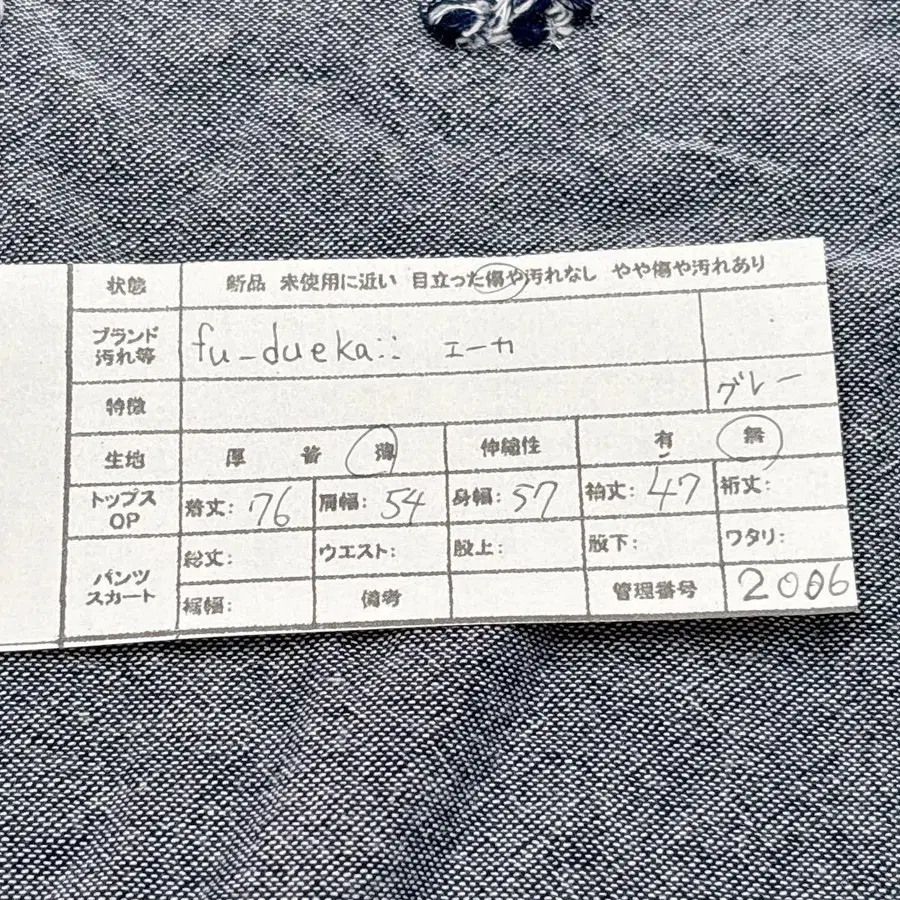 状態 新品 未使用に近い 目立った傷や汚れなし やや傷や汚れあり
ブランド
汚れ等
fu-dueka:: エーカ
特徴 グレー
生地 厚 普 薄 伸縮性 有 無
トップス
OP
着丈: 76 肩幅: 54 身幅: 57 袖丈: 47 裄丈:
パンツ
スカート
総丈: ウエスト: 股上: 股下: ワタリ:
裾幅: 備考 管理番号 2006